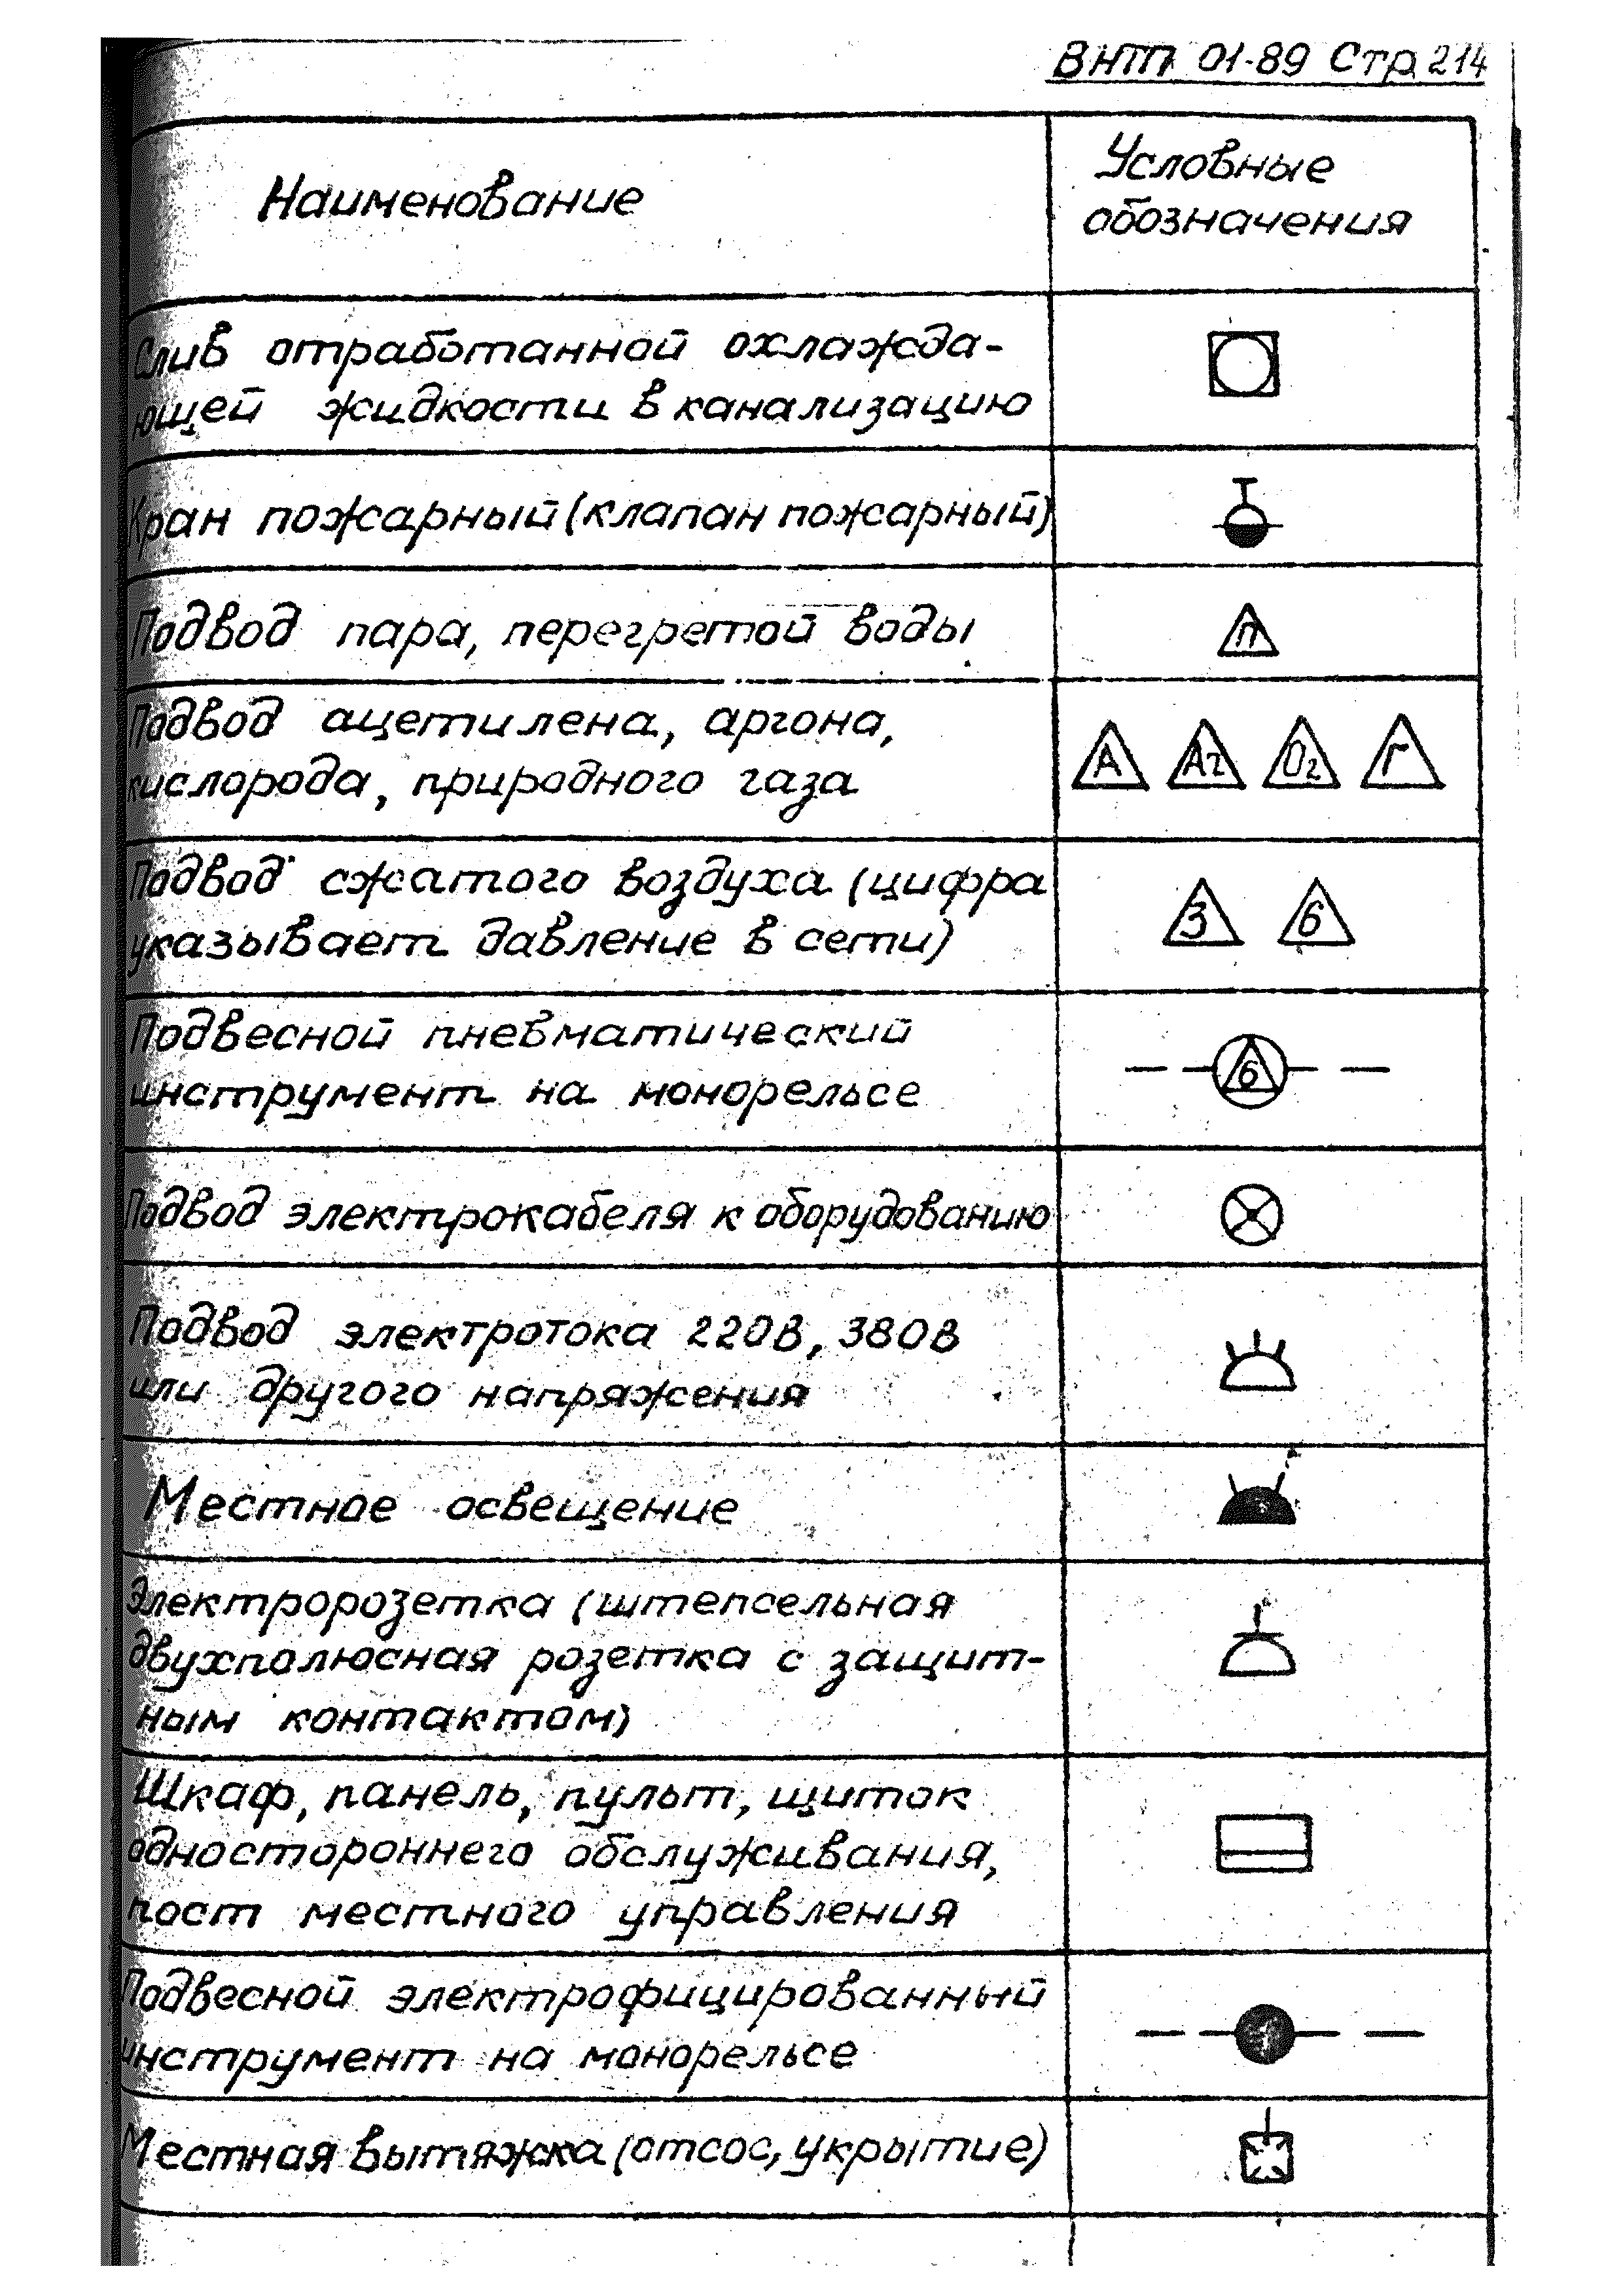 ВНТП 01-89 Стр 214
Наименование
Условные
обозначения
Слив отработанной охлажда-
ющей жидкости в канализацию
Кран пожарный (клапан пожарный)
Подвод пара, перегретой воды
П
Подвод ацетилена, аргона,
кислорода, природного газа
А Аг О2 Г
Подвод сжатого воздуха (цифра
указывает давление в сети)
3 6
Подвесной пневматический
инструмент на монорельсе
6
Подвод электрокабеля к оборудованию
Подвод электротока 220В, 380В
или другого напряжения
Местное освещение
Электророзетка (штепсельная
двухполюсная розетка с защит-
ным контактом)
Шкаф, панель, пульт, щиток
одностороннего обслуживания,
пост местного управления
Подвесной электрофицированный
инструмент на монорельсе
Местная вытяжка (отсос, укрытие)